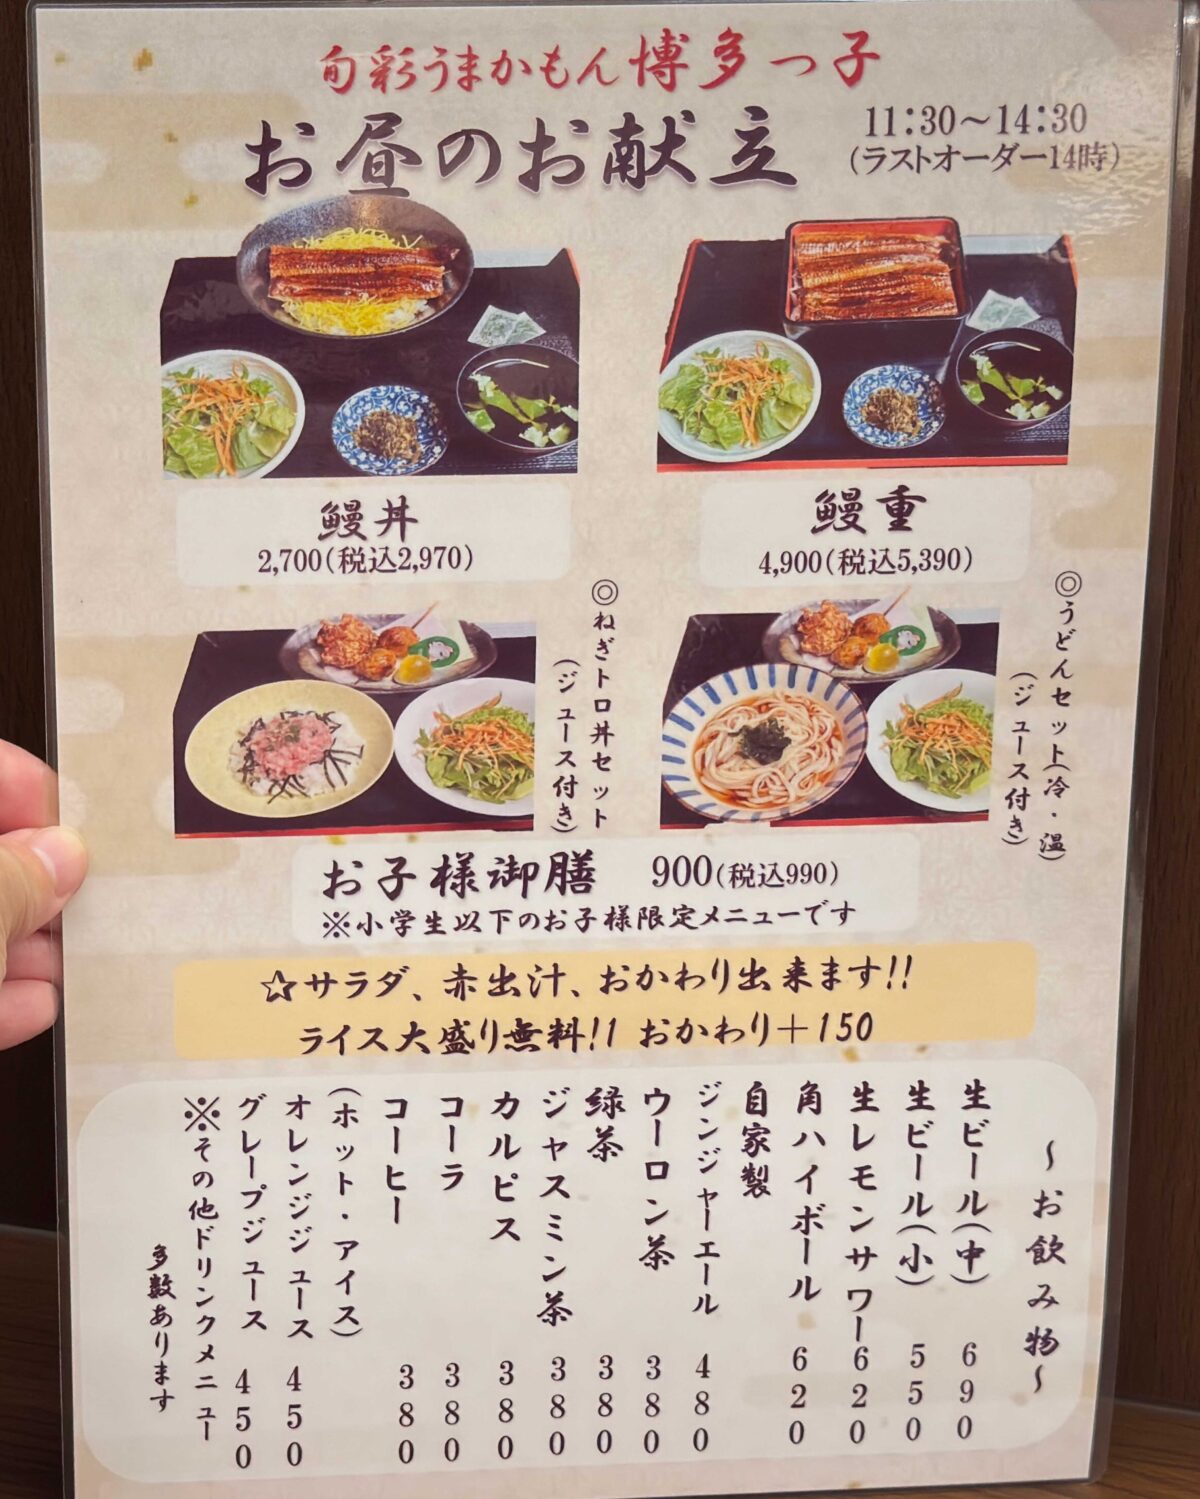 旬彩うまかもん博多っ子
お昼のお献立
11:30～14:30
(ラストオーダー14時)
鰻丼
2,700(税込2,970)
鰻重
4,900(税込5,390)
◎ねぎトロ丼セット
(ジュース付き)
◎うどんセット(冷・温)
(ジュース付き)
お子様御膳 900(税込990)
※小学生以下のお子様限定メニューです
☆サラダ、赤出汁、おかわり出来ます!!
ライス大盛り無料!1 おかわり＋150
～お飲み物～
生ビール(中) 690
生ビール(小) 550
生レモンサワー 620
角ハイボール 620
自家製
ジンジャーエール 480
ウーロン茶 380
緑茶 380
ジャスミン茶 380
カルピス 380
コーラ 380
コーヒー 380
(ホット・アイス)
オレンジジュース 450
グレープジュース 450
※その他ドリンクメニュー
多数あります